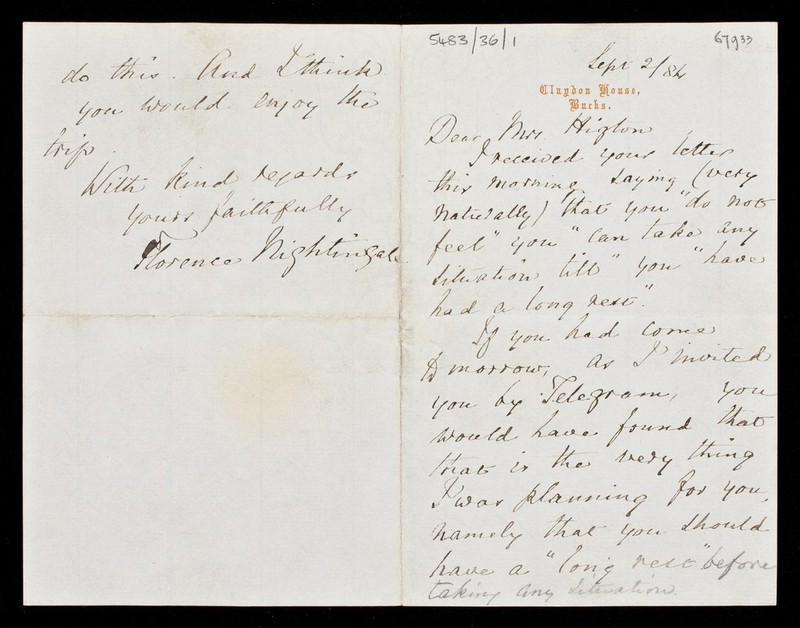 5483/36/1
67933
Sept 2/84
Claydon House,
Bucks.
Dear Mrs Higton
I received your letter
this morning saying (very
naturally) that you "do not
feel" you "can take any
situation till" you "have
had a long rest".
If you had come
to morrow, as I invited
you by Telegram, you
would have found that
that is the very thing
I was planning for you,
namely that you should
have a "long rest" before
taking any situation.
do this. And I think
you would enjoy the
trip.
With kind regards
yours faithfully
Florence Nightingale